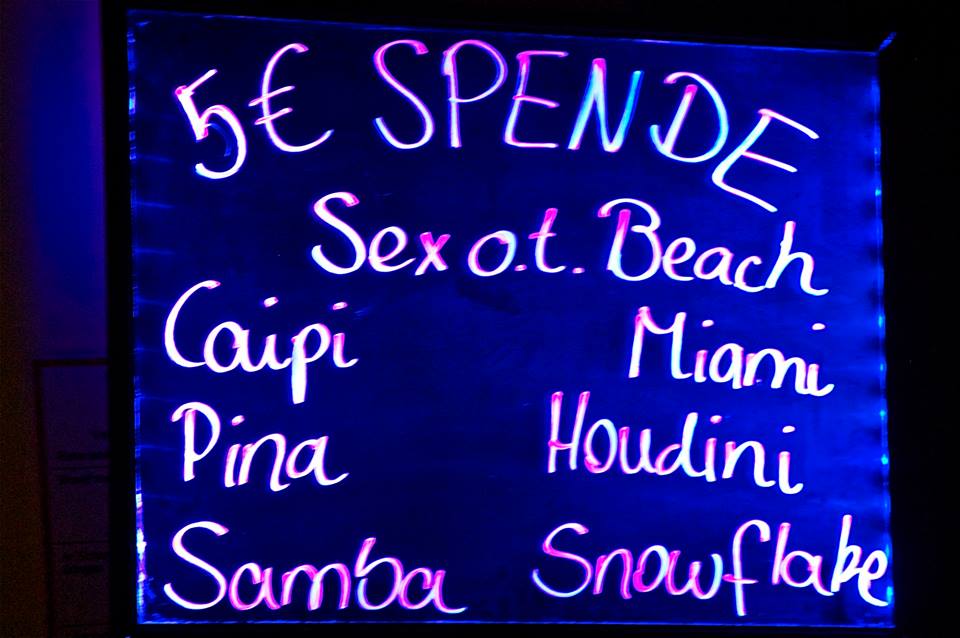 5€ SPENDE
Sex o.t. Beach
Caipi Miami
Pina Houdini
Samba Snowflake